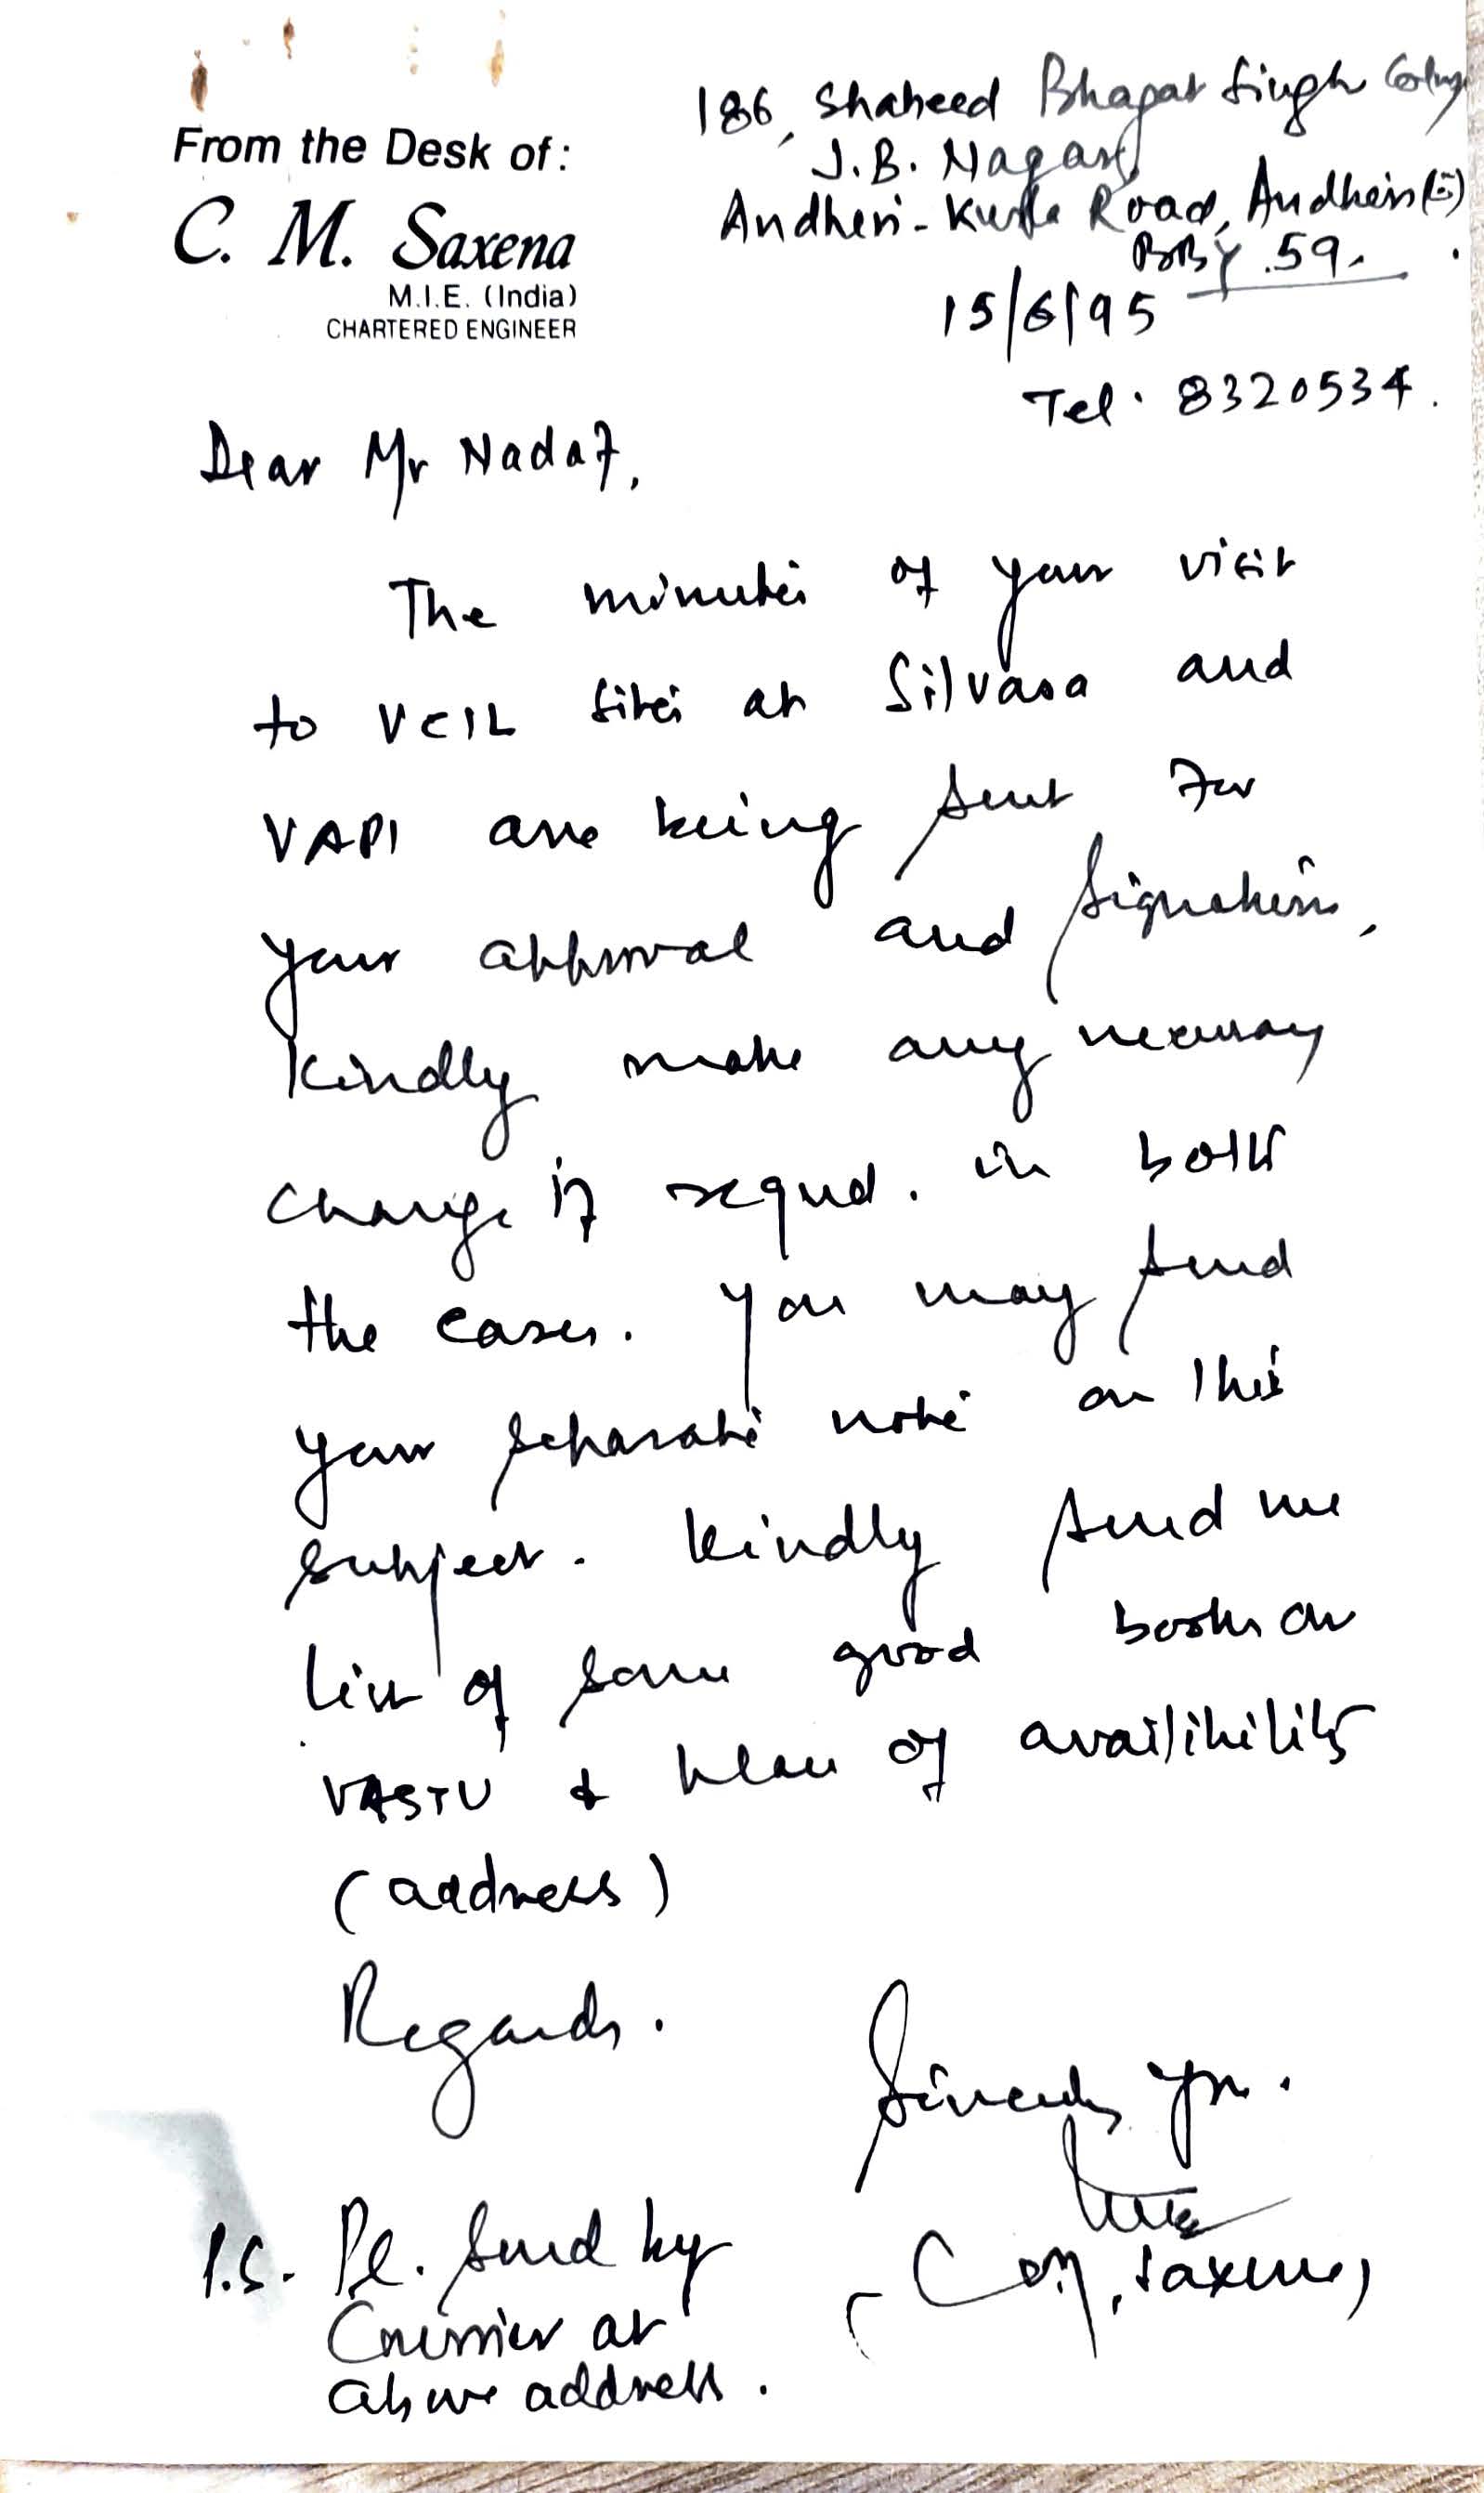 From the Desk of:
C. M. Saxena
M.I.E. (India)
CHARTERED ENGINEER
186, Shaheed Bhagat Singh Colony
J.B. Nagar
Andheri - Kurla Road, Andheri (E)
BBY 59.
15/6/95
Tel. 8320534.
Dear Mr Nadaf,
The minutes of your visit
to VCIL sites at Silvasa and
VAPI are being sent for
your approval and signature,
kindly make any necessary
change if requd. in both
the cases. You may send
your separate note on this
subject. Kindly send me
list of some good books on
VASTU & place of availibility
(address)
Regards.
Sincerely yrs.
(C.M. Saxena)
P.S. Pl. send by
Courrier at
above address.